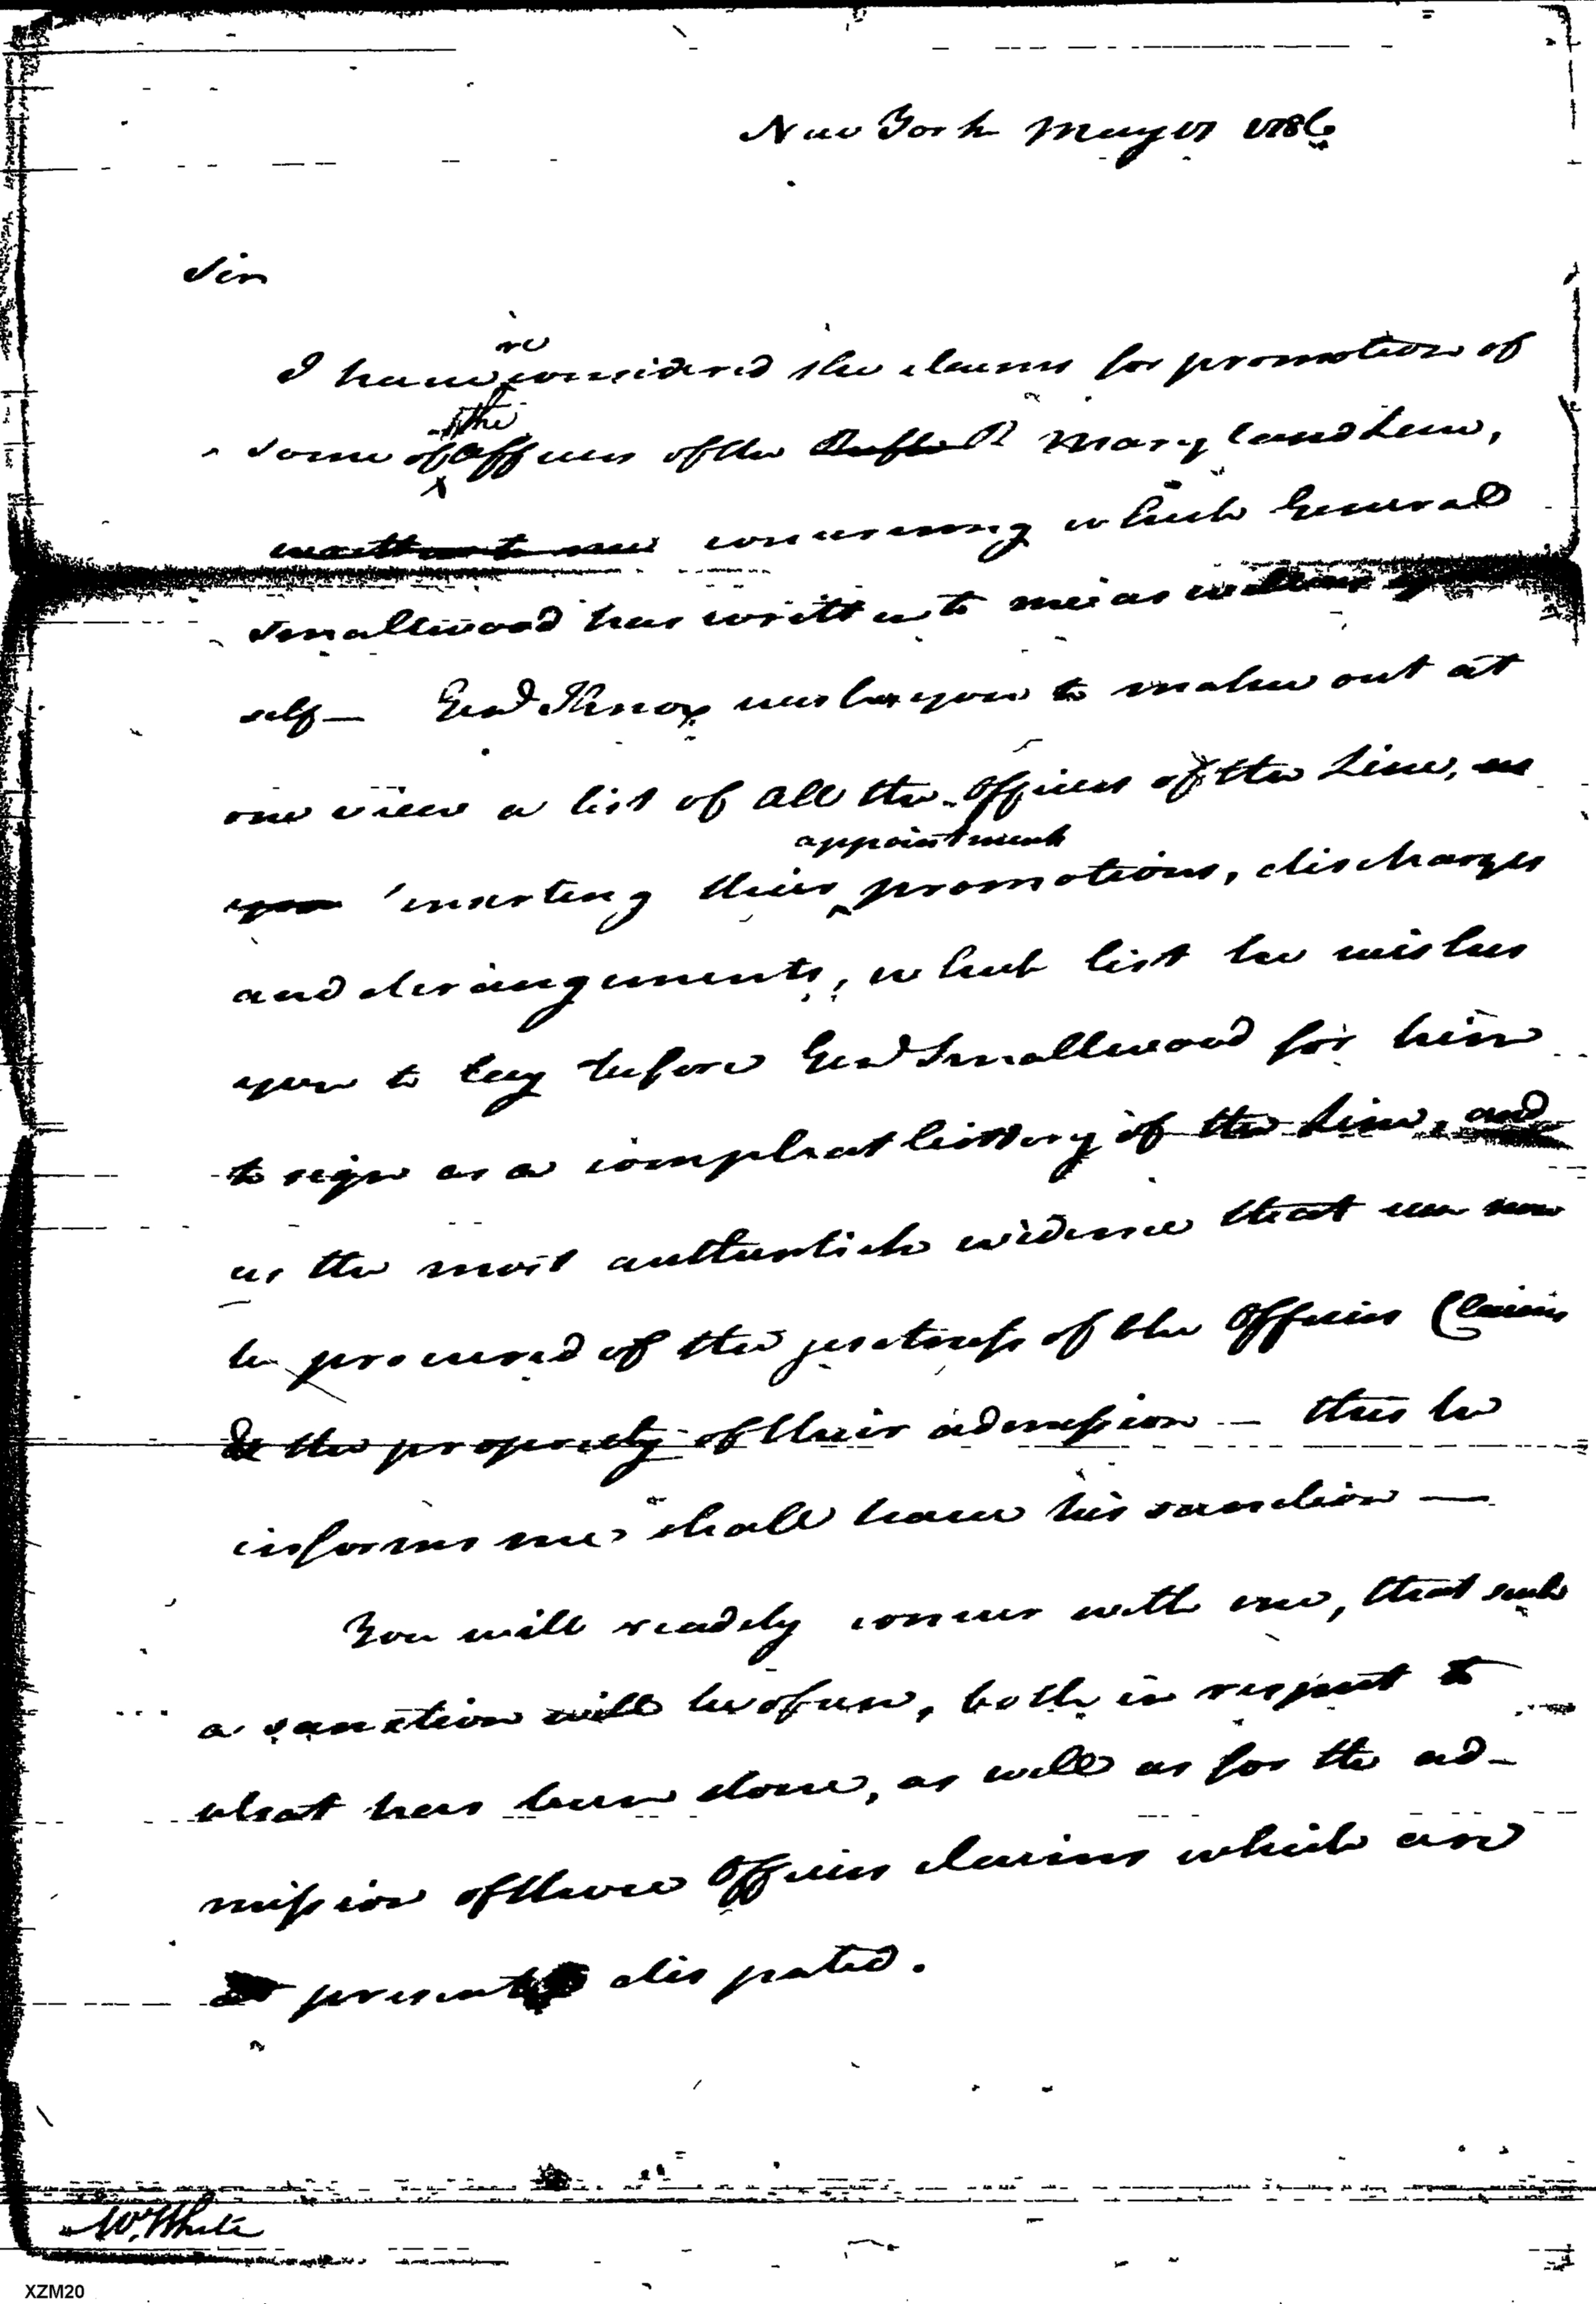 New York May 17 1786
Sir
re
I have considered the claims for promotion of
the
some of Officers of the Maryland Line,
written to me concerning which General
Smallwood has written to me as well as
self — Genl Knox wishes you to make out at
one view a list of all the Officers of the Line, in
appointments
inserting their promotions, discharges
and derangements, which list he wishes
you to lay before Genl Smallwood for him
to sign as a compleat history of the Line, and
as the most authentick evidence that can now
be procured of the justness of the Officers Claims
& the propriety of their admission — this he
informs me shall have his sanction —
You will readily concur with me, that such
a sanction will be of use, both in respect to
what has been done, as well as for the ad-
mission of those Officers claims which are
at present disputed.
Mr. White
XZM20